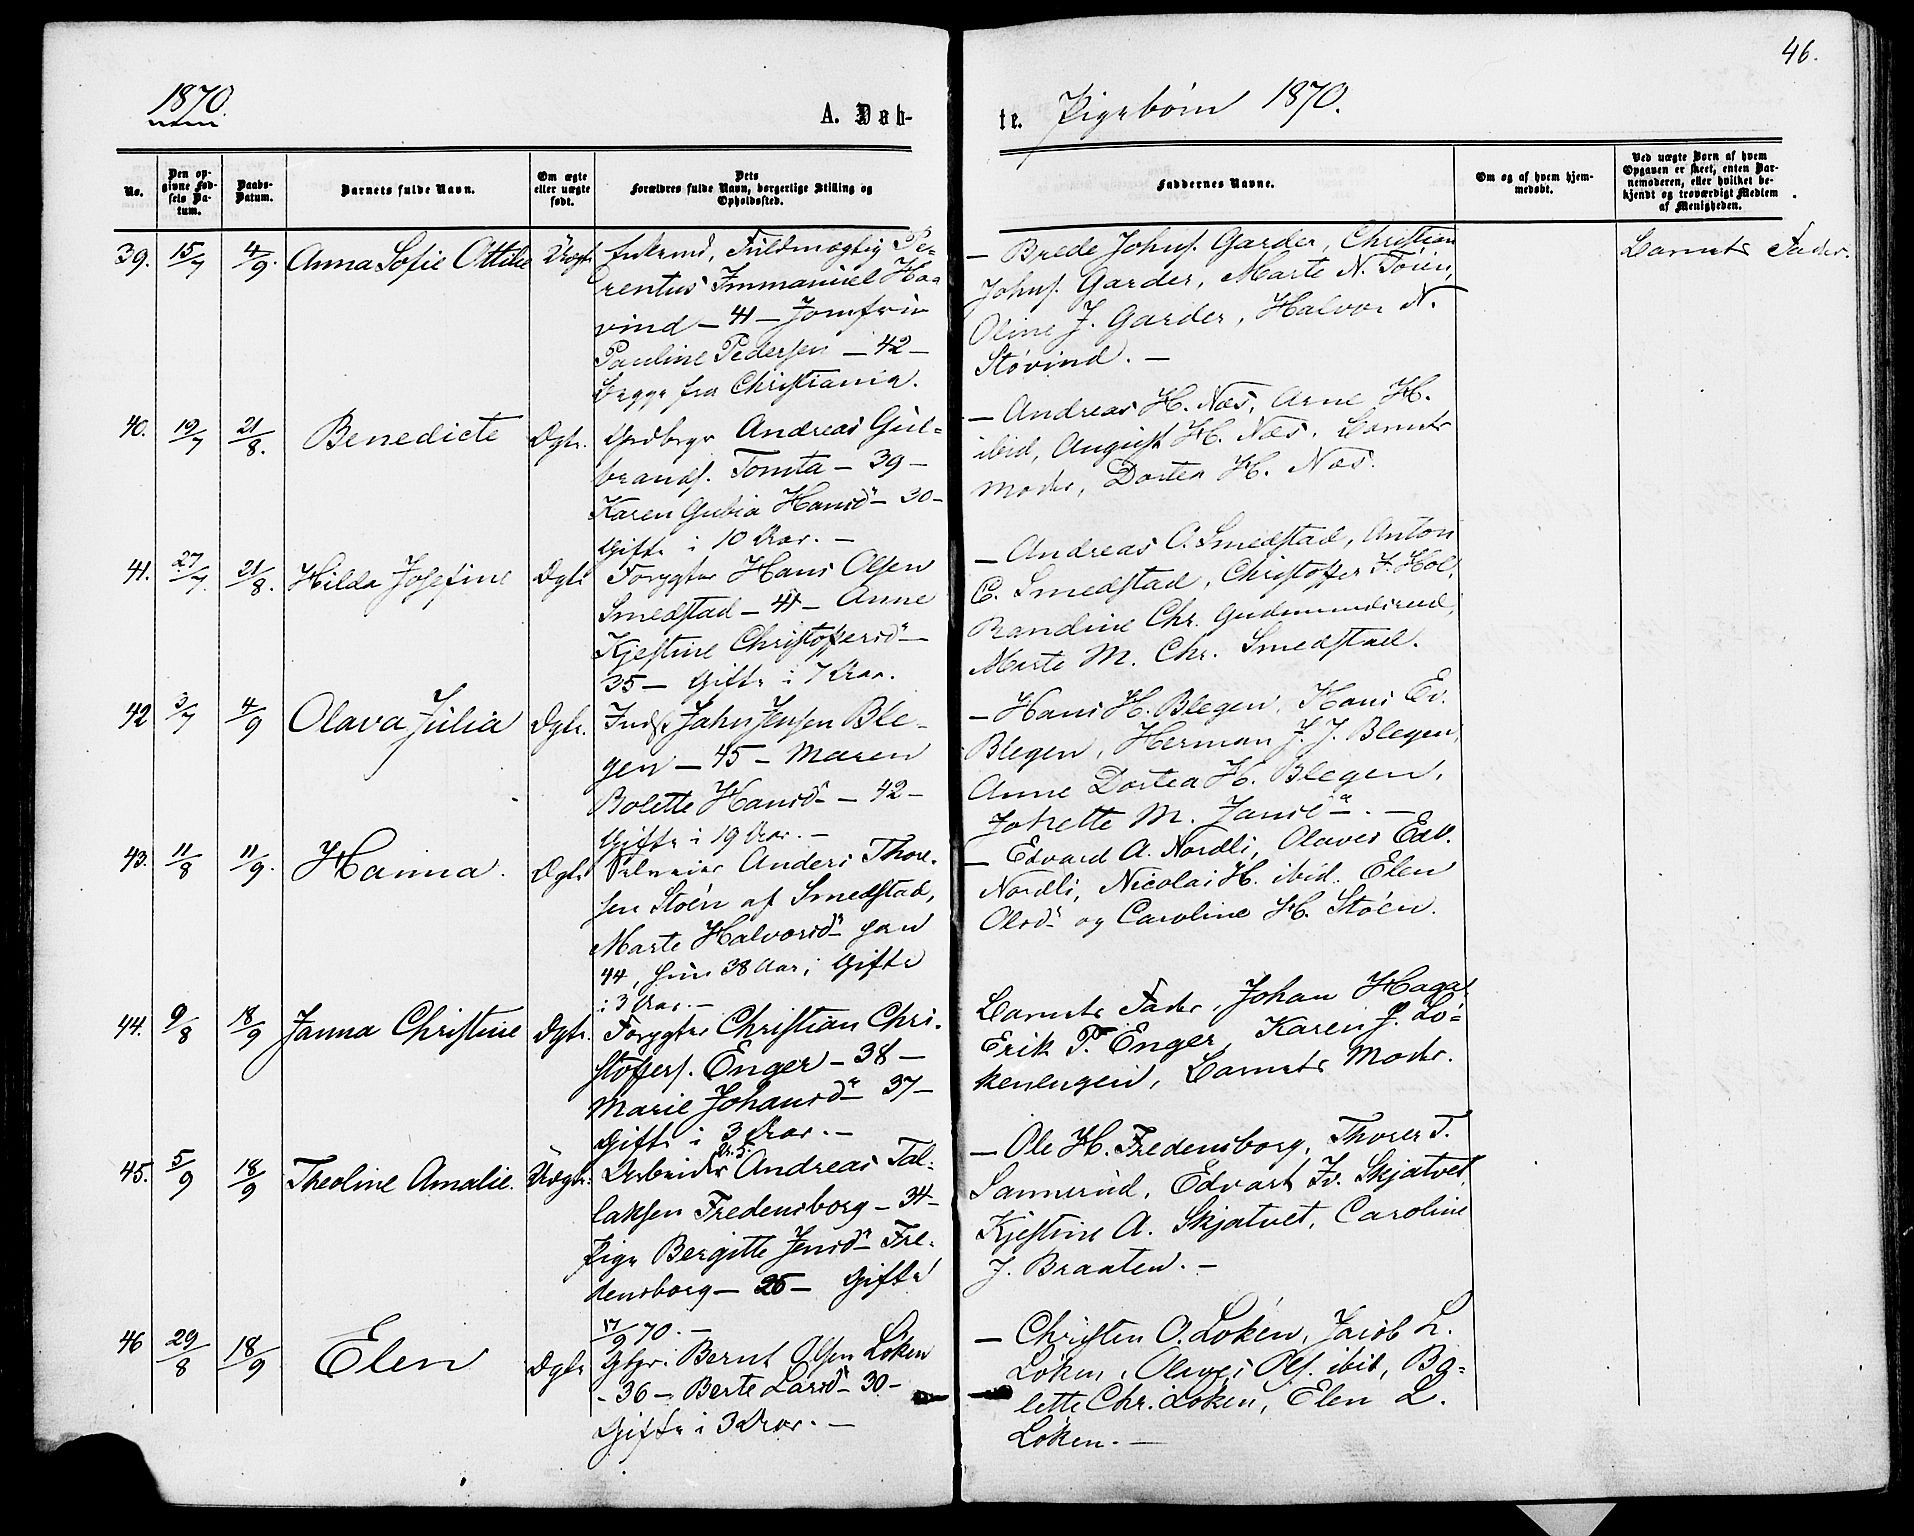 46.
1870.
A. Døb-
te. Pigebørn 1870.
No.
Den op-
givne Fød-
sels Da-
tum.
Daabs-
Datum.
Barnets fulde Navn.
Om ægte
eller uægte
født.
Dets
Forældres fulde Navn, borgerlige Stilling og
Opholdssted.
Faddernes Navne.
Om og af hvem hjem-
medøbt.
Ved uægte Børn af hvem
Opgaven er skeet, enten Bar-
nemoderen, eller hvilket be-
kjendt og troværdigt Medlem
af Menigheden.
39. 15/7 4/9. Anna Sofie Ottilie Uægt.
Enkemd, Fuldmægtig Pe-
rentus Immanuel Haa
vind – 41 – Jomfru
Pauline Pedersen – 42 –
begge fra Christiania.
– Brede Johns. Garder, Christian
Johns. Garder, Marte N. Toien,
Oline J. Garder, Halvor N.
Støvind. –
Barnets Fader.
40. 19/7 21/8. Benedicte Ægte.
Andreas Gul-
brands. Tomta – 39 –
Karen Gubia Hansd – 30 –
Gifte i 10 Aar. –
– Andreas H. Næs, Arne H.
ibid, August H. Næs, Barnets
Moder, Dortea H. Næs.
41. 27/7. 21/8. Hilda Josefine Ægte
Forpgter Hans Olsen
Smedstad – 41 – Anne
Kjestine Christoffersd –
35 – Gifte i 7 Aar.
– Andreas C. Smedstad, Anton
C. Smedstad, Christoffer J. Hol,
Randine Chr. Gudmundsrud,
Marte M. Chr. Smedstad.
42 3/7 4/9 Olava Julia Ægte.
Inds. Jahn Jensen Ble-
gen – 45 – Maren
Bolette Hansd – 42 –
Gifte i 19 Aar. –
– Hans H. Blegen, Hans Ev.
Blegen, Herman J. J. Blegen,
Anne Dortea H. Blegen,
Johette M. Jansd. –
43. 11/8 11/9. Hanna. Ægte
Selveier Anders Thore-
sen Støen af Smedstad,
Marte Halvorsd han
44, hun 38 Aar, Gifte
i 3 Aar. –
– Edvard A. Nordli, Olaves Edv.
Nordli, Nicolai H. ibid. Elen
Olsd og Caroline H. Støen.
44. 9/8 18/9 Janna Christine Ægte.
Forpgter Christian Chri-
stoffers. Enger – 38 –
Marie Johansd 37 –
Gifte i 3 Aar. –
Barnets Fader, Johan Haga
Erik P. Enger, Karen J. Lø-
kenengen, Barnets Moder.
45. 5/9 18/9 Theoline Amalie. Uægte.
Arbeider Andreas Tal-
laksen Fredensborg – 34 –
Pige Bergitte Jensd Fre-
densborg – 25 – Gifte
17/9 70. –
– Ole H. Fredensborg, Thorer T.
Sannerud, Edvart Fr. Skjatvet,
Kjestine A. Skjatvet, Caroline
J. Braaten. –
46 29/8 18/9 Elen Ægte
Bernt Olsen Løken
– 36 – Berte Larsd – 30 –
Gifte i 3 Aar. –
– Christen O. Løken, Jacob L.
Løken, Olaves Ols. ibid, Bo-
lette Chr. Løken, Elen L.
Løken. –